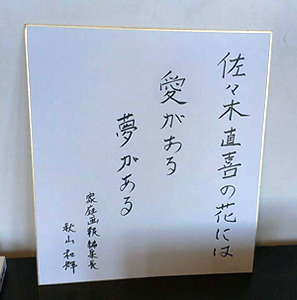 佐々木直喜の花には
愛がある
夢がある
家庭画報編集長
秋山和輝